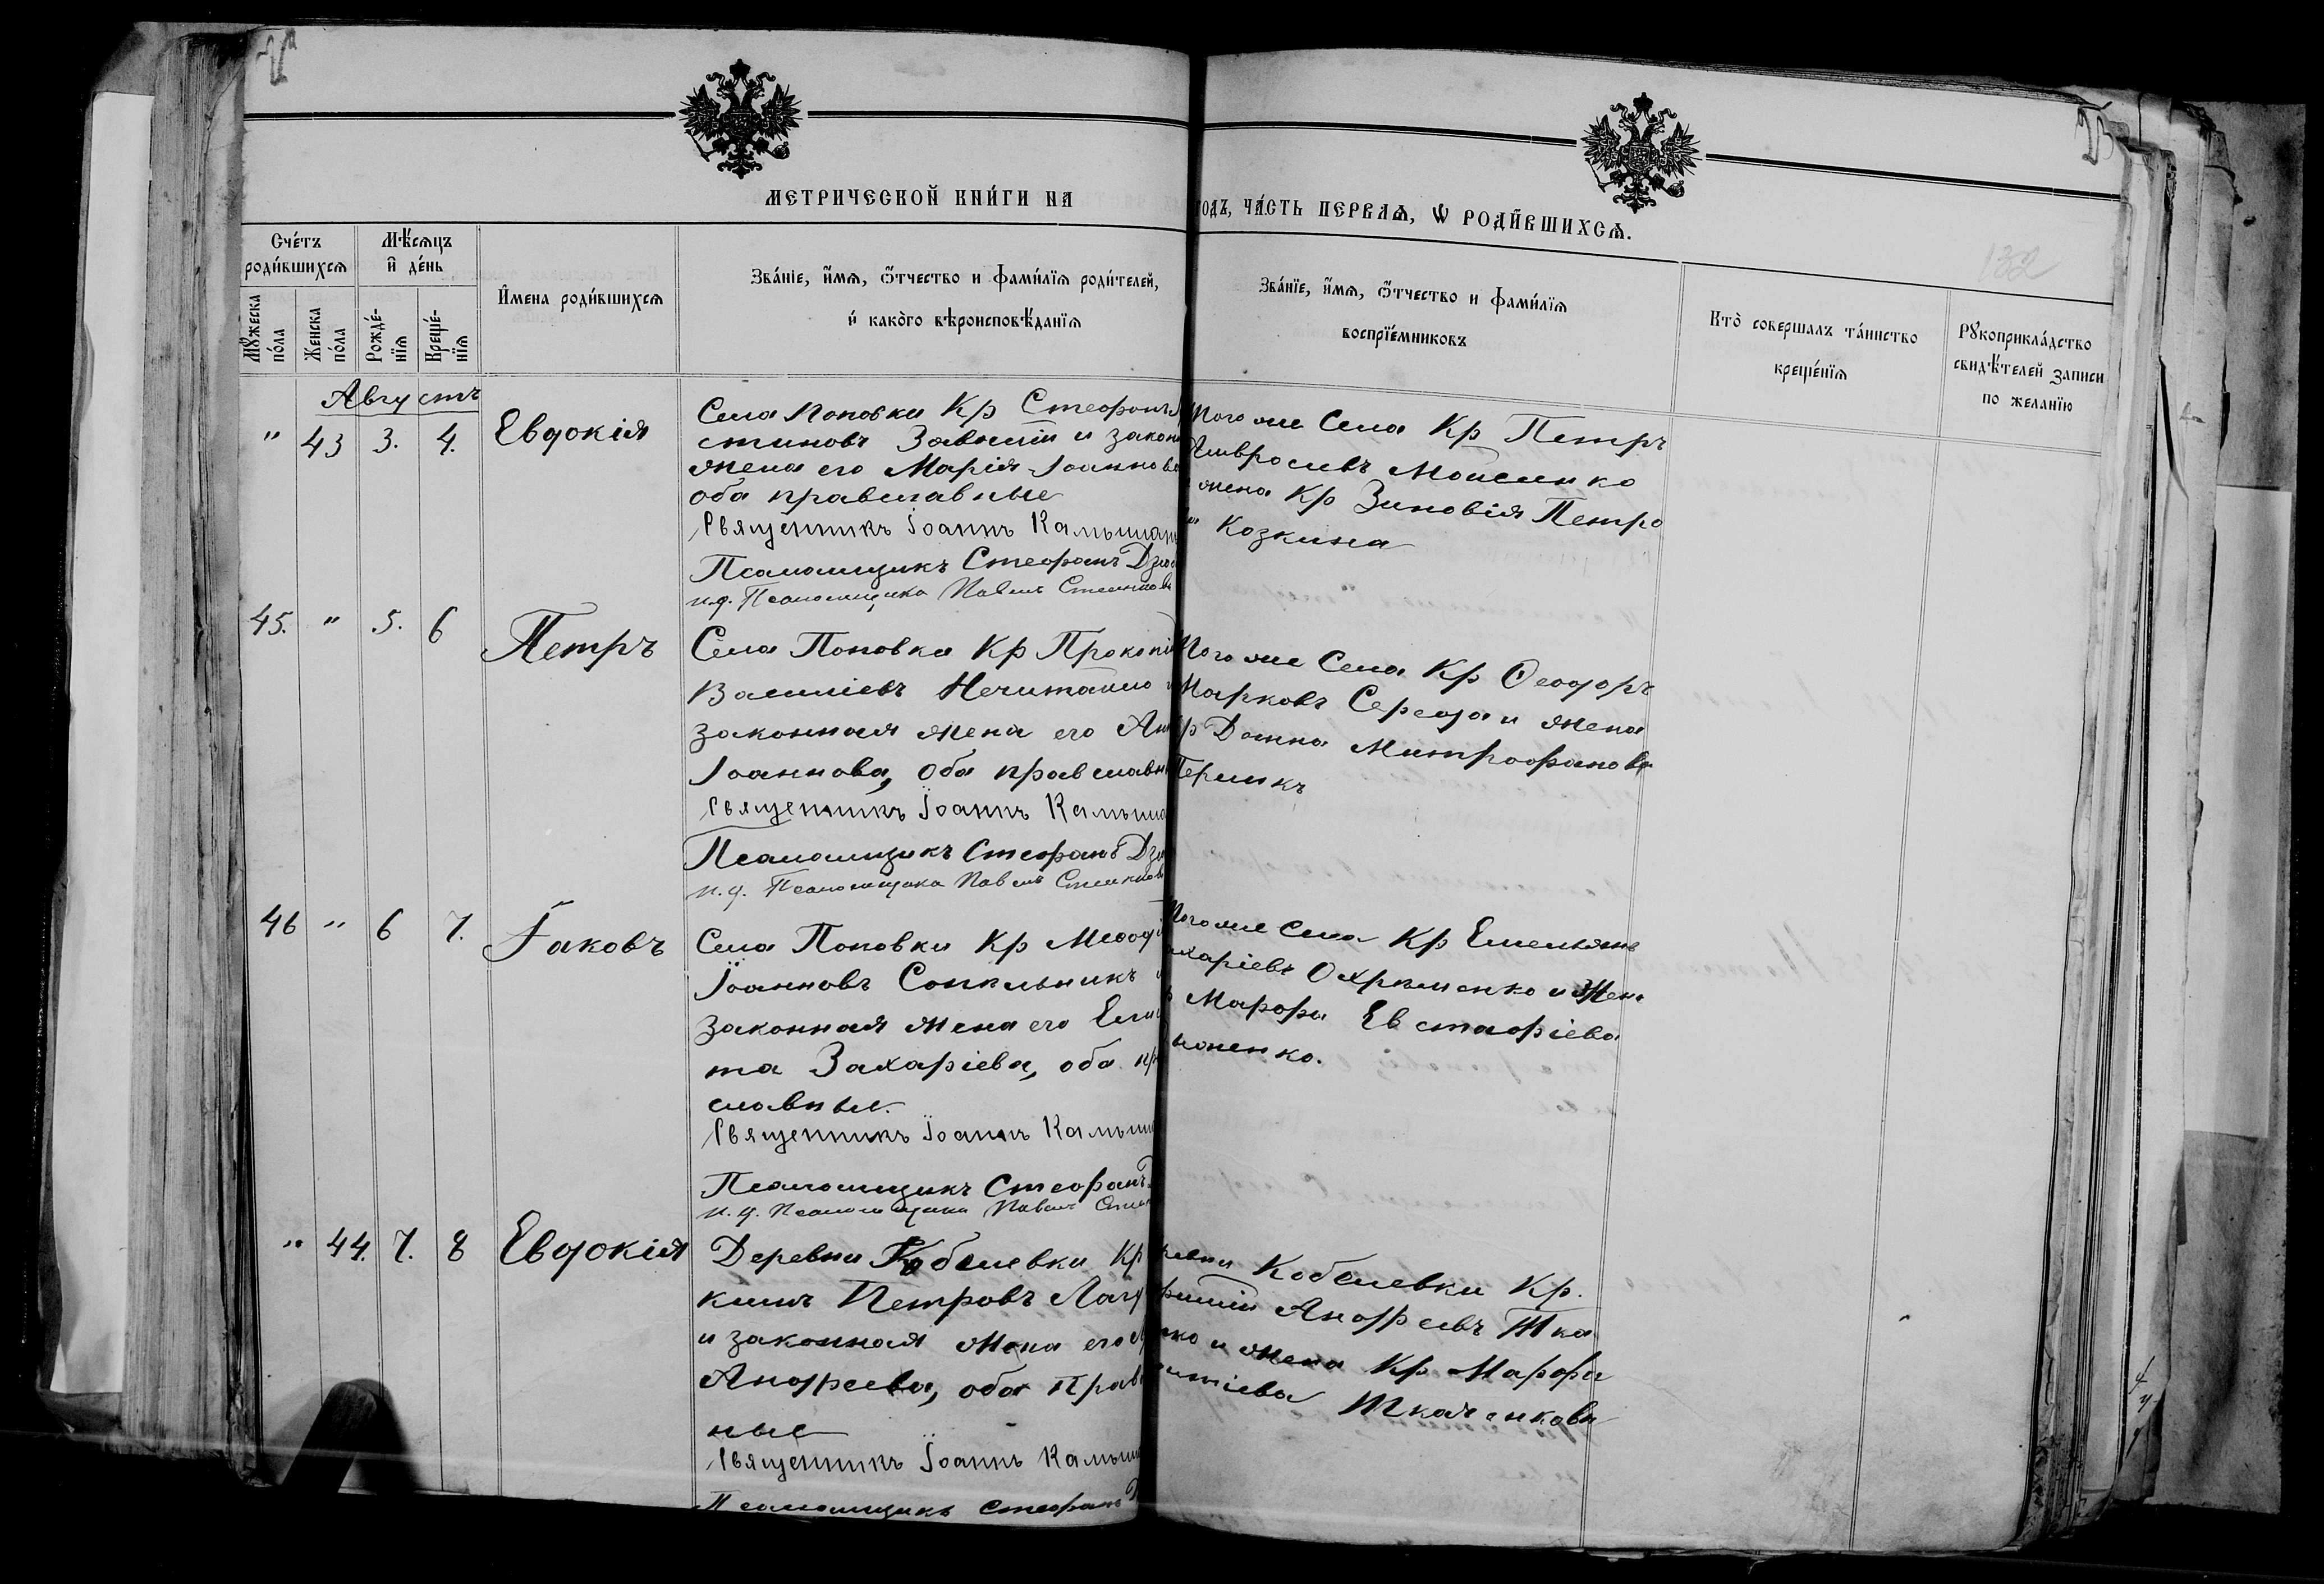 МЕТРИЧЕСКОЙ КНИ́ГИ НА
ГОДЪ, ЧА́СТЬ ПЕРВАѦ, Ѡ РОДИ́ВШИХСѦ.
132
Сче́тъ роди́вшихсѧ
Мѣ́сѧцъ и҆ де́нь
И҆мена роди́вшихсѧ
Зва́нїе, и҆́мѧ, ѻ҆́тчество и фами́лїѧ роди́телей,
и҆ како́го вѣроисповѣ́данїѧ
Зва́нїе, и҆́мѧ, ѻ҆́тчество и фами́лїѧ
воспрїе́мниковъ
Кто̀ совершалъ та́инство
креще́нїѧ
Рꙋкоприкла́дство
свидѣ́телей записи
по жела́нїю
Мꙋ́жеска по́ла
Же́нска по́ла
Рожде́-нїѧ
Креще́-нїѧ
Августъ
" 43 3. 4. Евдокія
Села Поповки Кр Стефанъ
стиновъ и закон
жена его Марія Іоаннова
оба православные
Священникъ Іоаннъ Камышан
Псаломщикъ Стефанъ Дзюб
и.д. Псаломщика Павелъ
Того же Села Кр Петръ
Амвросіевъ Моисеенко
жена Кр Зиновія Петро
Козкина
45. " 5. 6 Петръ
Села Поповки Кр Прокопій
Василіевъ Нечитайло и
законная жена его Анн
Іоаннова, оба православн
Священникъ Іоаннъ Камыша
Псаломщикъ Стефанъ Дзю
и.д. Псаломщика Павелъ
Того же Села Кр Ѳеодоръ
Марковъ Середа и жена
Кр Домна Митрофанова
46 " 6 7. Іаковъ
Села Поповки Кр Меѳод
Іоанновъ Сопильникъ и
законная жена его Елиса
та Захаріева, оба пра
славные.
Священникъ Іоаннъ Камыш
Псаломщикъ Стефанъ
и.д. Псаломщика Павелъ
Того же Села Кр Емельянъ
ахаріевъ Охрименко и Жена
Марфа Евстафіева
ноненко.
" 44. 7. 8 Евдокія
Деревни Кобелевки Кр
кимъ Петровъ
и законная жена его
Андреева, оба Прав
ные
Священникъ Іоаннъ Камыш
Псаломщикъ Стефанъ Д
ревни Кобелевки Кр.
Андреевъ Тка
нко и жена Кр Марфа
Ткаченкова